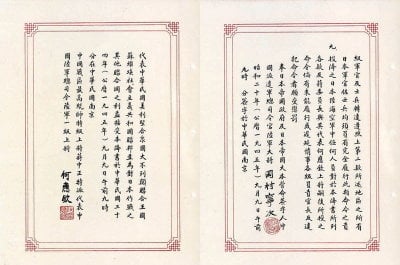 級軍官及士兵轉達遵照上第二款所述地區之所有
日本軍官佐士兵均須負有完全履行此類命令之責
九、投降之日本陸海空軍中任何人員對於本降書所列
各款及蔣委員長與其代表何應欽上將嗣後所授之
命令倘有未能履行或遲延情事各級負責官長及違
犯命令者願受懲罰
奉日本帝國政府及日本帝國大本營命簽字人中
國派遣軍總司令官陸軍大將 岡村寧次
昭和二十年（公曆一九四五年）九月九日午前
九時 分簽字於中華民國南京
代表中華民國美利堅合眾國大不列顛聯合王國
蘇維埃社會主義共和國聯邦並為對日本作戰之
其他聯合國之利益接受本降書於中華民國三十
四年（公曆一九四五年）九月九日午前九時
分在中華民國南京
中國戰區最高統帥特級上將蔣中正特派代表中
國陸軍總司令陸軍一級上將
何應欽